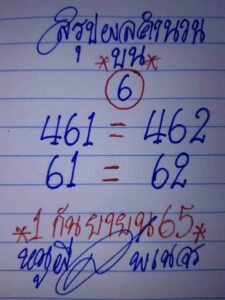 สรุปผลคำนวน
*บน*
6
461 = 462
61 = 62
*1 กันยายน65*
หนูผี พเนจร